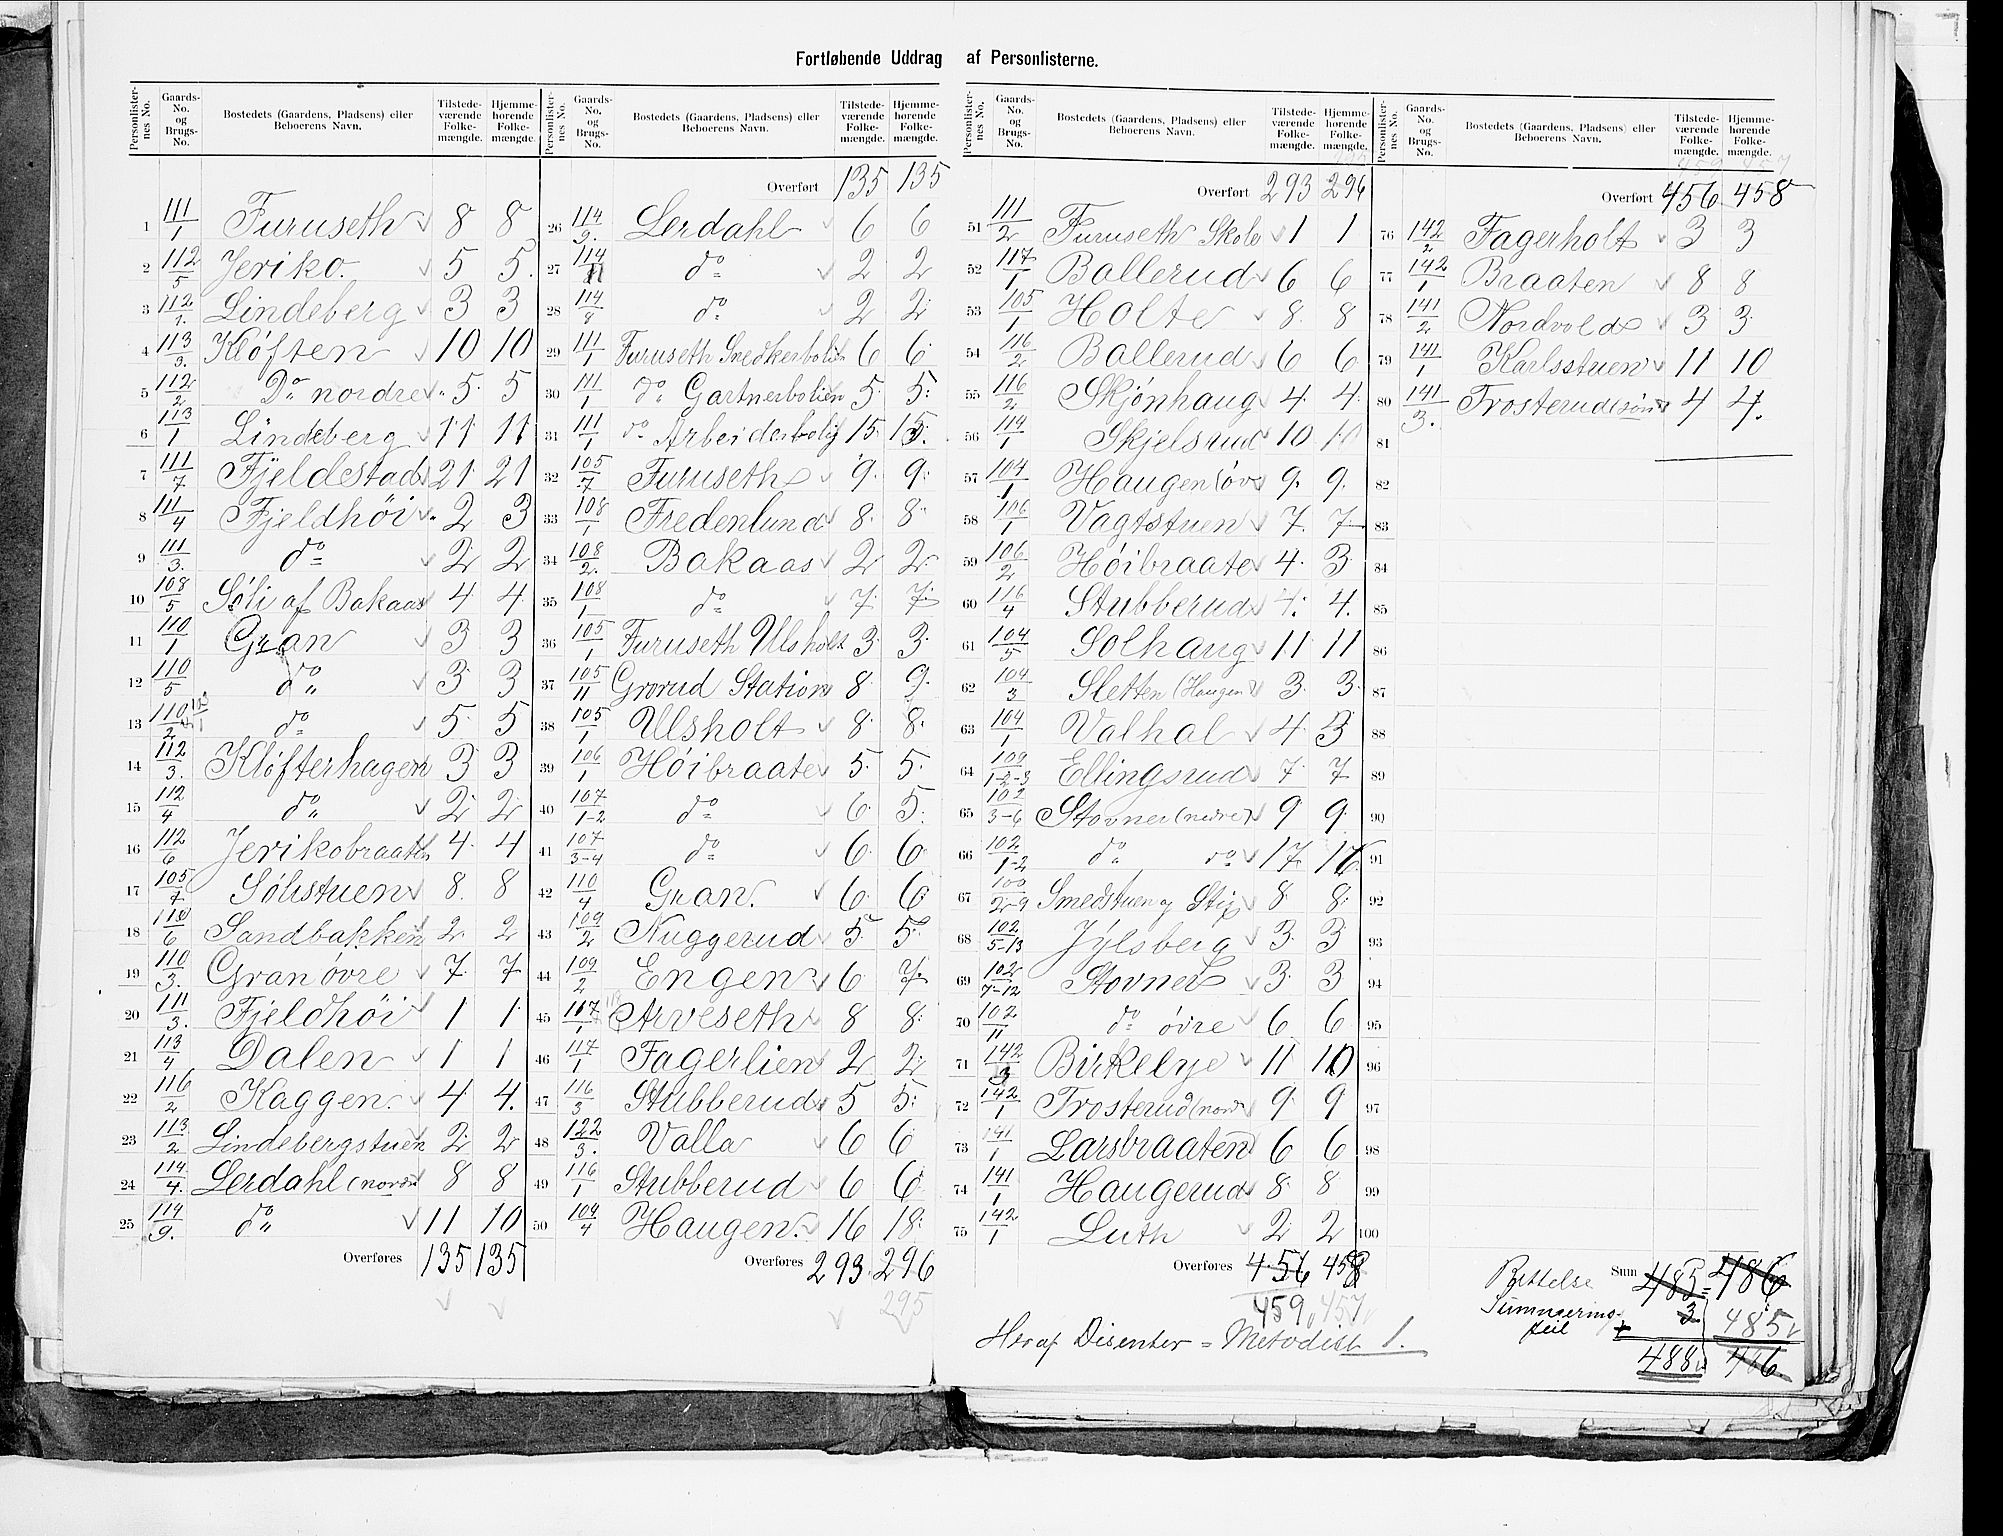 Fortløbende Uddrag af Personlisterne.
Personlisternes No. | Gaards-No. og Brugs-No. | Bostedets (Gaardens, Pladsens) eller Beboerens Navn. | Tilstedeværende Folkemængde. | Hjemmehørende Folkemængde.
1 111/1 Furuseth 8 8
2 112/5 Jeriko. 5 5.
3 112/1. Lindeberg 3 3
4 113/3. Kløften 10 10
5 112/2 Do nordre 5 5
6 113/1 Lindeberg 11 11
7 111/7 Fjeldestad 21 21
8 111/4 Fjeldhöi 2 3
9 111/3. do 2 2
10 108/5 Søli af Bakaas 4 4
11 110/1 Gran 3 3
12 110/5 do 3 3
13 110/2 do 5 5
14 112/3. Kløfterhagen 3 3
15 112/4 do 2 2
16 112/6 Jerikobraaten 4 4
17 105/7 Sølistuen 8 8
18 110/6 Sandbakken 2 2
19 110/3. Gran övre 7 7
20 111/3. Fjeldhöi 1 1
21 113/4 Dalen 1 1
22 116/2 Kaggen. 4 4.
23 113/2 Lindebergstuen 2 2
24 114/4. Lerdahl (nordre 8 8
25 114/9. do 11 10
Overføres 135 135
Overført 135 135
26 114/9. Lerdahl 6 6
27 114/11 do 2 2
28 114/8 do 2 2
29 111/1 Furuseth Snedkerbolig 6 6
30 111/1 do Gartnerbolien 5 5
31 111/1 do Arbeiderbolig 15 15.
32 105/7 Furuseth 9 9
33 108/1 Fredenlund 8 8
34 108/2. Bakaas 2 2
35 108/1 do 7 7
36 105/1 Furuseth Ulsholt 3 3
37 105/11 Grorud Station 8 9
38 105/1 Ulsholt 8 8
39 106/1 Höibraate 5 5
40 107/1-2 do 6 5
41 107/3-4 do 6 6
42 110/4 Gran. 6 6
43 109/2 Nuggerud 5 5
44 109/2 Engen 6 7
45 117/1 Arveseth 8 8
46 117/1 Fagerlien 2 2
47 116/3 Stubberud 5 5
48 122/3. Valla 6 6
49 116/1 Stubberud 6 6
50 104/4 Haugen. 16 18
Overføres 293 296
295
Overført 293 296
295
51 111/2 Furuseth Skole 1 1
52 117/1 Bollerud 6 6
53 105/1 Holte 8 8
54 116/2 Bollerud 6 6
55 116/2 Skjönhaug 4 4
56 119/1 Skjelsrud 10 10
57 104/1 Haugen (øv 9 9
58 106/1 Vagtstuen 7 7
59 106/2 Høibraate 4 3
60 116/4 Stubberud 4 4.
61 104/5 Solhaug 11 11
62 104/3 Sletten (Haugen 3 3
63 104/1 Valhal 4 3
64 109/1-2-3 Ellingsrud 7 7
65 102/3-6 Stovner (nedre) 9 9
66 102/1-2 do do 17 16
67 100/2-9 Smedstuen og Stig 8 8
68 102/5-13 Jylsberg 3 3
69 102/7-12 Stovner 3 3
70 102/11 do övre 6 6
71 142/3 Birkelye 11 10
72 142/1 Trosterud (nord 9 9
73 141/1 Larsbraaten 6 6
74 141/1 Haugerud 8 8
75 142/1 Luth 2 2
Overføres 456 458
459 457
Heraf Disenter = Metodist 1.
Overført 456 458
459 457
76 142/2 Fagerholt 3 3
77 142/1 Braaten 8 8
78 141/2 Nordvold 3 3
79 141/1 Karlsstuen 11 10
80 141/3. Trosterud (sön 4 4.
81
82
83
84
85
86
87
88
89
90
91
92
93
94
95
96
97
98
99
100
Rettelse Sum 485 486
Summerings- 3 485
feil + 488 486